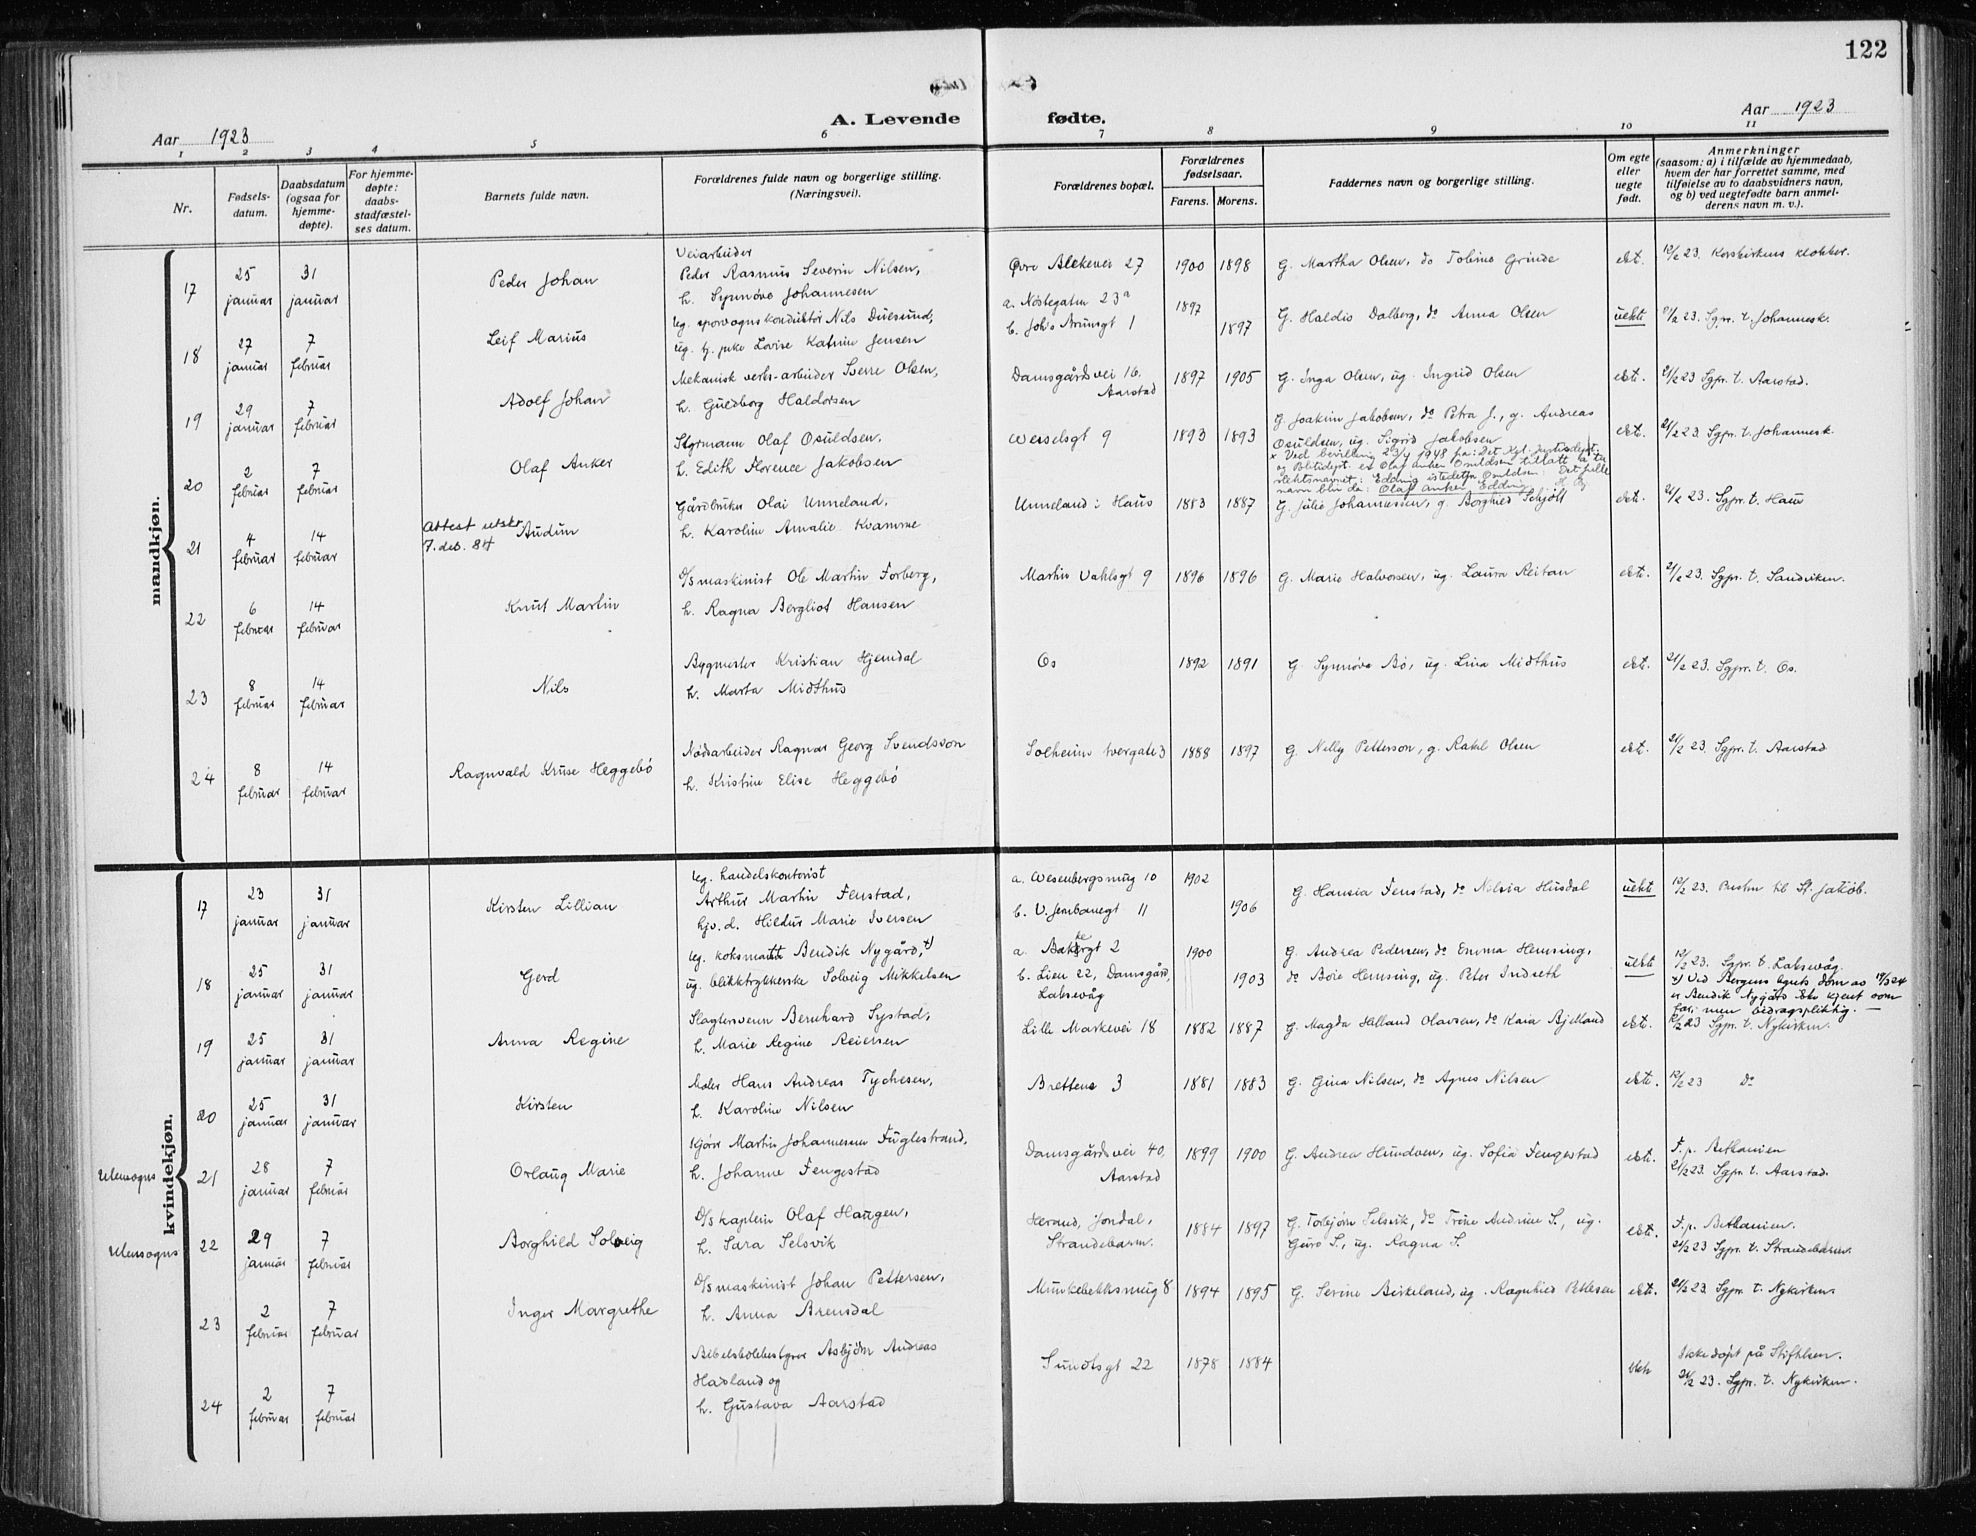 122
Aar 1923
A. Levende fødte.
Aar 1923
1 2 3 4 5 6 7 8 9 10 11
Nr.
Fødsels-
datum.
Daabsdatum
(ogsaa for
hjemme-
døpte).
For hjemme-
døpte:
daabs-
stadfæstel-
ses datum.
Barnets fulde navn.
Forældrenes fulde navn og borgerlige stilling.
(Næringsvei).
Forældrenes bopæl.
Forældrenes
fødselsaar.
Farens. Morens.
Faddernes navn og borgerlige stilling.
Om egte
eller
uegte
født.
Anmerkninger
(saasom: a) i tilfælde av hjemmedaab,
hvem der har forrettet samme, med
tilføielse av to daabsvidners navn,
og b) ved uegtefødte barn anmel-
derens navn m. v.).
mandkjøn.
17
25
januar
31
januar
Peder Johan
Veiarbeider
Peder Rasmus Severin Nilsen,
h. Synnøve Johannesen
Øvre Blekevei 27
1900 1898
G. Martha Olsen, do Tobine Grinde
ekt.
12/2 23. Korskirkens klokker.
18
27
januar
7
februar
Leif Marius
Ug. sporvognskonduktør Nils Duesund,
ug. tj. pike Lovise Katrine Jensen
a. Nøstegaten 23a
b. Johs Brunsgt 1
1897
1897
G. Haldis Dalberg, do Anna Olsen
uekte
21/2 23. Sgpr. t. Johannesk.
19
29
januar
7
februar
Adolf Johan
Mekanisk verks-arbeider Sverre Olsen,
h. Guldborg Haldorsen
Damsgårdsvei 16.
Aarstad
1897 1905
G. Inga Olsen, ug. Ingrid Olsen
ekt.
21/2 23 Sgpr. t. Aarstad.
20
2
februar
7
februar
Olaf Anker
Styrmann Olaf Osuldsen,
h. Edith Florence Jakobsen
Wesselsgt 9
1893 1893
G. Joakim Jakobsen, do Petra J., g. Andreas
Osuldsen, ug. Sigrid Jakobsen
x Ved bevilling 23/4 1948 fra: Det Kgl. Justisdept.
og Politidept. er Olaf Anker Osuldsen tillatt å ta
slektsnavnet: Edding istedetfor Osuldsen. Det fulle
navn blir da: Olaf Anker Edding
ekt.
21/2 23 Sgpr. t. Johannesk.
21
4
februar
14
februar
Attest utskr.
7. des. 84
Audun
Gårdbruker Olai Unneland,
h. Karoline Amalie Kvamme
Unneland i Haus
1883 1887
G. Julie Johannessen, g. Borghild Schjøtt
ekt.
21/2 23. Sgpr. t. Haus
22
6
februar
14
februar
Knut Martin
D/s maskinist Ole Martin Forberg,
h. Ragna Bergliot Hansen
Martin Vahlsgt 9
1896 1896
G. Marie Halvorsen, ug. Laura Reitan
ekt.
21/2 23. Sgpr. t. Sandviken.
23
8
februar
14
februar
Nils
Bygmester Kristian Hjemdal
h. Marta Midthus
Os
1892 1891
G. Synnøve Bø, ug. Lina Midthus
ekt.
21/2 23. Sgpr. t. Os.
24
8
februar
14
februar
Ragnvald Kruse Heggebø
Nødsarbeider Ragnar Georg Svendsson
h. Kristine Elise Heggebø
Solheims tvergate 3
1888 1897
G. Nelly Petterson, g. Rakel Olsen
ekt.
21/2 23. Sgpr. t. Aarstad
kvindekjøn.
17
23
januar
31
januar
Kirsten Lillian
Ug. handelskontorist
Arthur Martin Fenstad,
hjv. d. Hildur Marie Iversen
a. Wesenbergsmug 10
b. V. Jernbanegt 11
1902
1906
G. Hansia Fenstad, do Nilsia Husdal
uekte
12/2 23. Bestm til St. Jakob.
18
25
januar
31
januar
Gerd
Ug. koksmatt Bendik Nygård, x)
ug. blikktrykkerske Solveig Mikkelsen
a. Bakkergt 2
b. Lien 22, Damsgård,
Laksevåg
1900
1903
G. Andrea Pedersen, do Emma Hemsing,
do Bøie Hemsing, ug. Peter Indseth
uekte
12/2 23. Sgpr. t. Laksevåg.
x) Ved Bergens byrets dom av 19/3 24
er Bendik Nygård ikke kjent som
far, men bidragspliktig. —
19
25
januar
31
januar
Anna Regine
Slagtersvenn Bernhard Systad,
h. Marie Regine Reiersen
Lille Markevei 18
1882 1887
G. Magda Helland Olavsen, do Kaia Bjelland
ekt.
12/2 23 Sgpr. t. Nykirken.
20
25
januar
31
januar
Kirsten
Maler Hans Andreas Tychesen,
h. Karoline Nilsen
Brettene 3
1881 1883
G. Gina Nilsen, do Agnes Nilsen
ekt.
12/2 23 do
Utensogns
21
28
januar
7
februar
Orlaug Marie
Kjører Martin Johannessen Fuglestrand,
h. Johanne Fengestad
Damsgårdsvei 40.
Aarstad
1899 1900
G. Andrea Hundven, ug. Sofia Fengestad
ekt.
F. p. Bethanien
21/2 23. Sgpr. t. Aarstad.
Utensogns
22
29
januar
7
februar
Borghild Solveig
D/s kaptein Olaf Haugen,
h. Sara Selsvik
Herand, Jondal,
Strandebarm.
1884 1897
G. Torbjørn Selsvik, do Trine Andrine S., ug.
Guro S., ug. Ragna S.
ekt.
F. p. Bethanien.
21/2 23 Sgpr. t. Strandebarm.
23
2
februar
7
februar
Inger Margrethe
D/s maskinist Johan Pettersen,
h. Anna Brensdal
Munkebekksmug 8
1894 1895
G. Serine Birkeland, ug. Ragnhild Pettersen
ekt.
21/2 23. Sgpr. t. Nykirken.
24
2
februar
7
februar
Bibelskolebestyrer Asbjørn Andreas
Hauland og
h. Gustava Aarstad
Sundtsgt 22
1878 1884
ekte
Ikke døpt på Stiftelsen.
21/2 23. Sgpr. t. Nykirken.